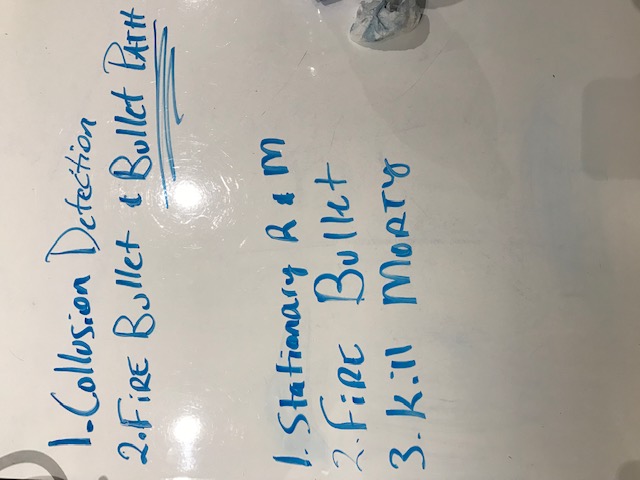 1. Collusion Detection
2. FIRE Bullet & Bullet PATH
1. Stationary R & M
2. FIRE Bullet
3. Kill MORTY